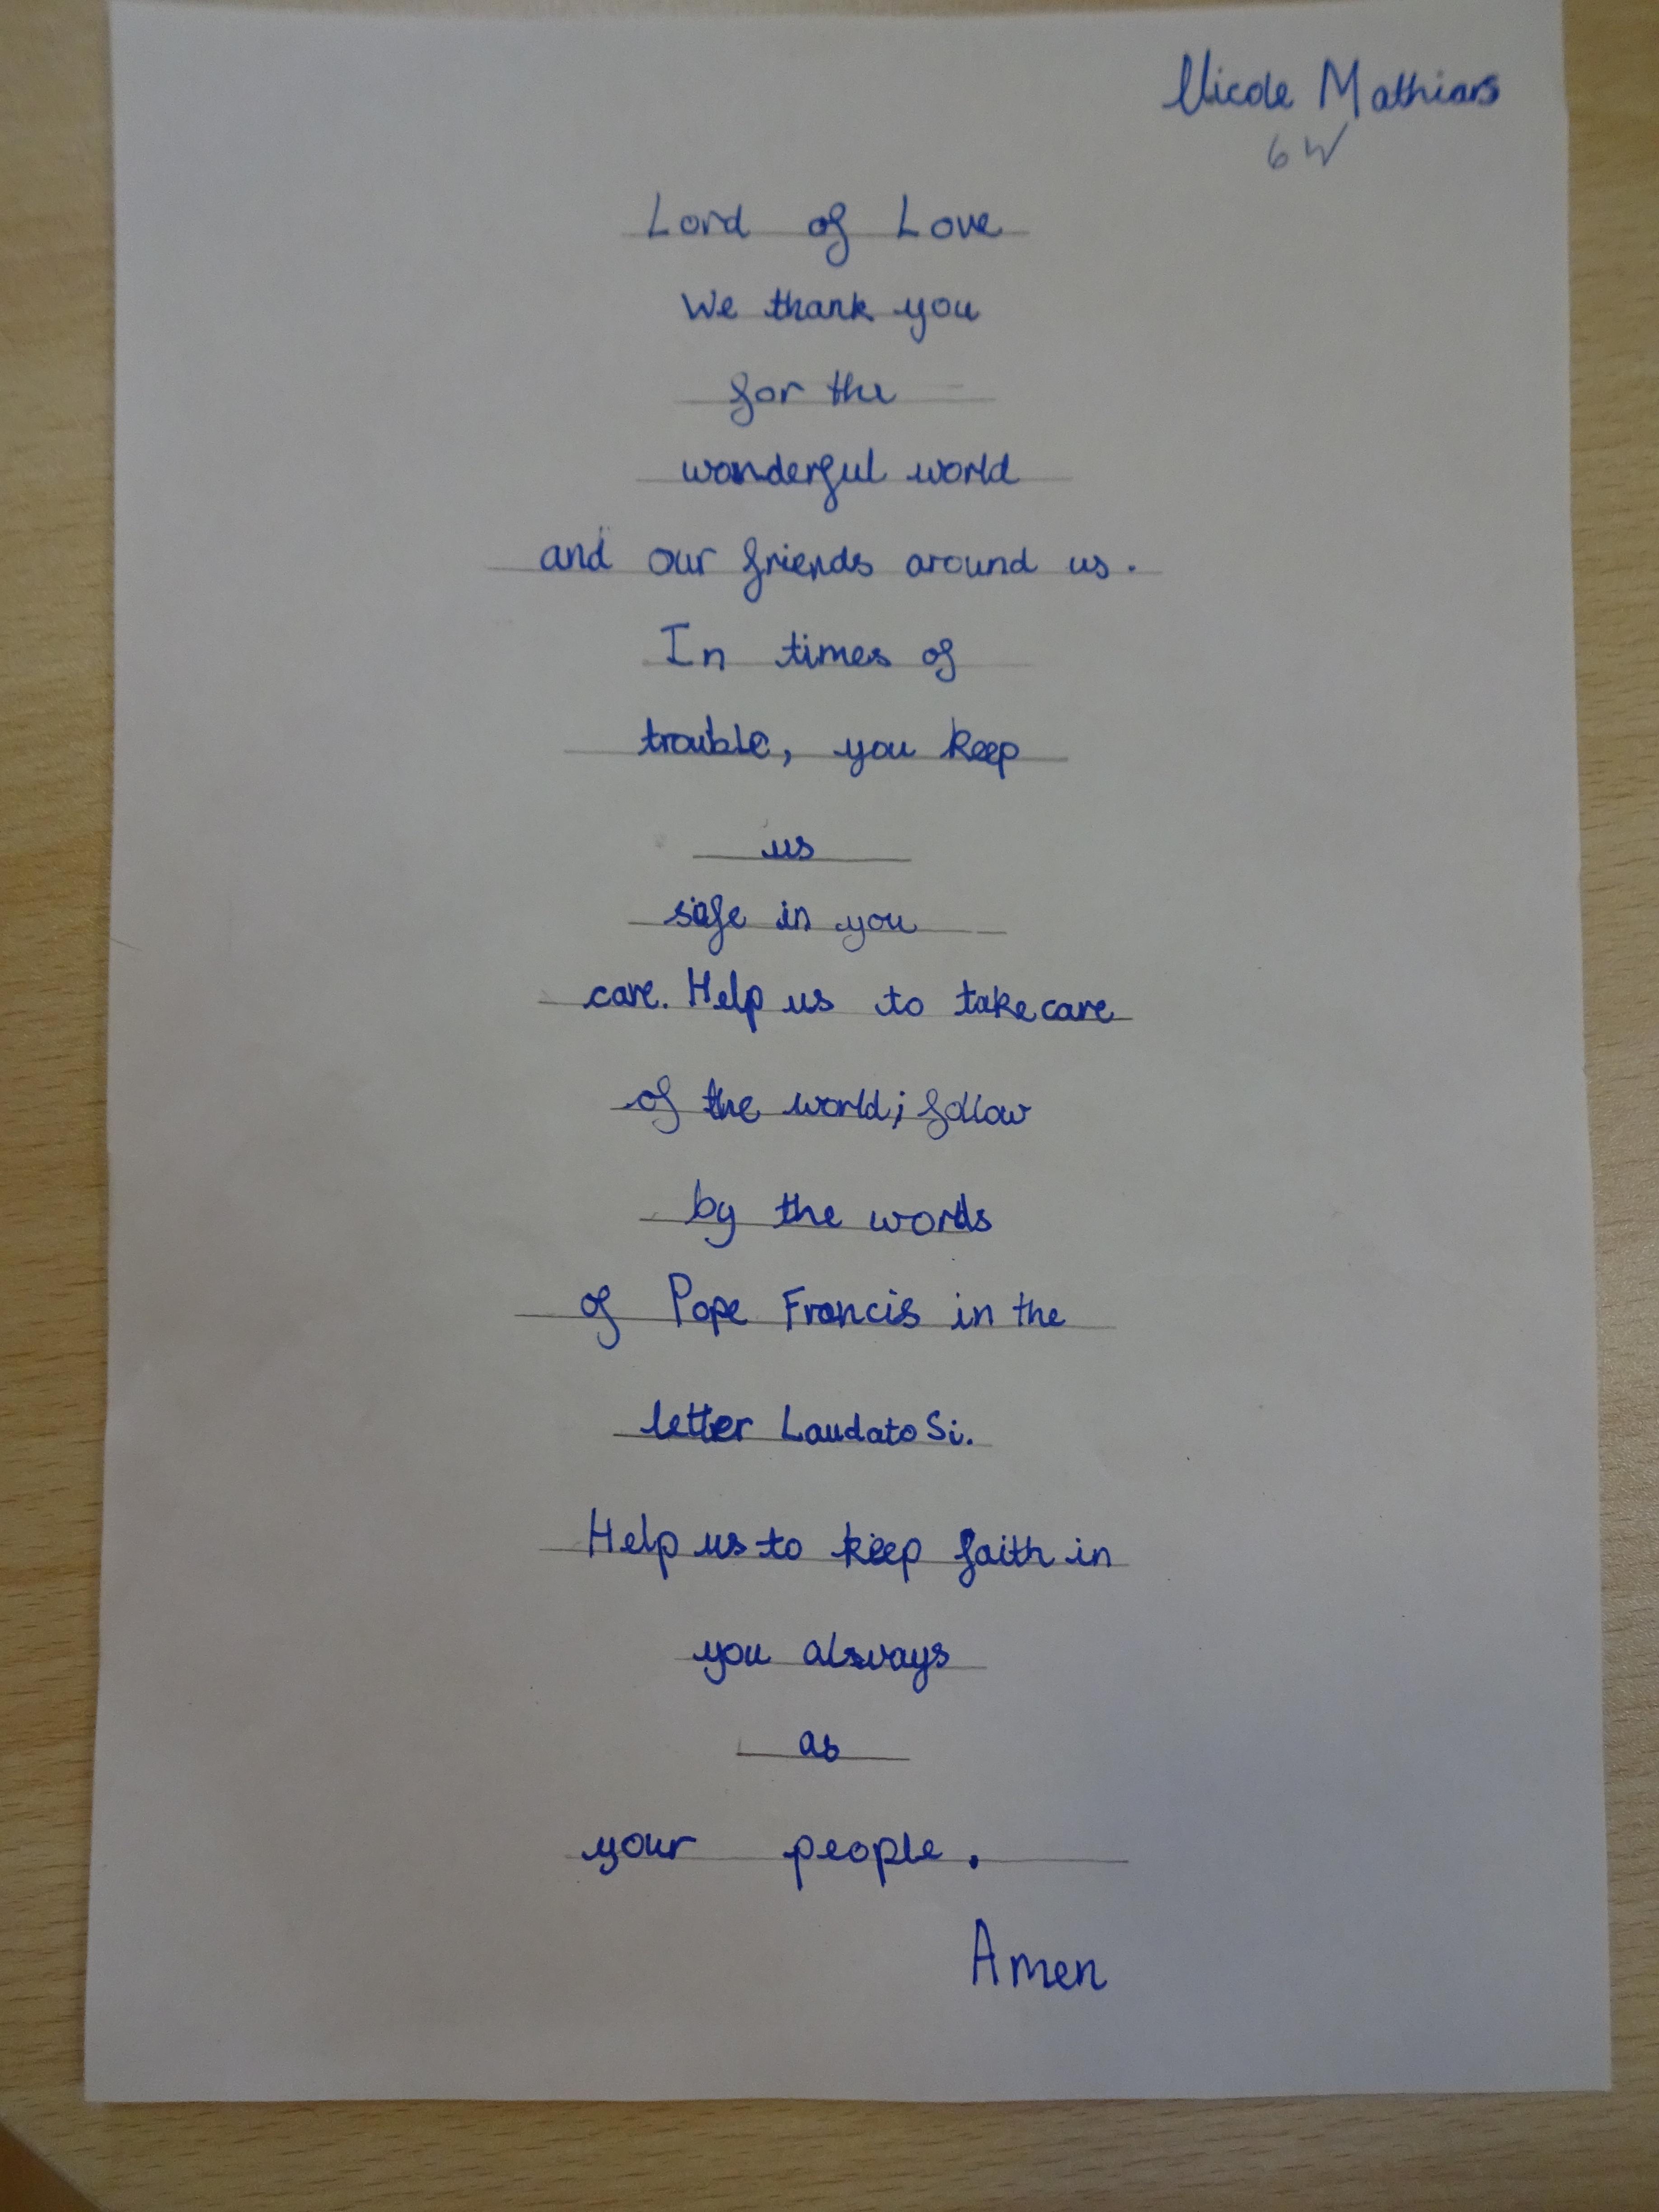 Nicole Mathias
6W
Lord of Love
We thank you
for the
wonderful world
and our friends around us.
In times of
trouble, you keep
us
safe in you
care. Help us to take care
of the world; follow
by the words
of Pope Francis in the
letter Laudato Si.
Help us to keep faith in
you always
as
your people.
Amen